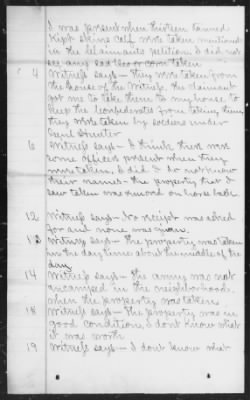 I was present when thirteen tanned
Kipt Skins Calf were taken mentioned
in the Claimants petition, I did not
see any saddles or corn taken
4 Witness says - they were taken from
the house of the Witness, the claimant
got me to take them to my house to
keep the Confederates from taking them,
they were taken by soldiers under
Genl
6 Witness says - I think there were
some officers present when they
were taken, I did not know
their names - the property that I
saw taken was moved on horse back
12 Witness says - No receipt was asked
for and none was given.
13 Witness says - The property was taken
in the day time about the middle of the
day
14 Witness says - The army was not
encamped in the neighborhood
when the property was taken
18 Witness says - The property was in
good condition, I dont know what
it was worth
19 Witness says - I dont know what